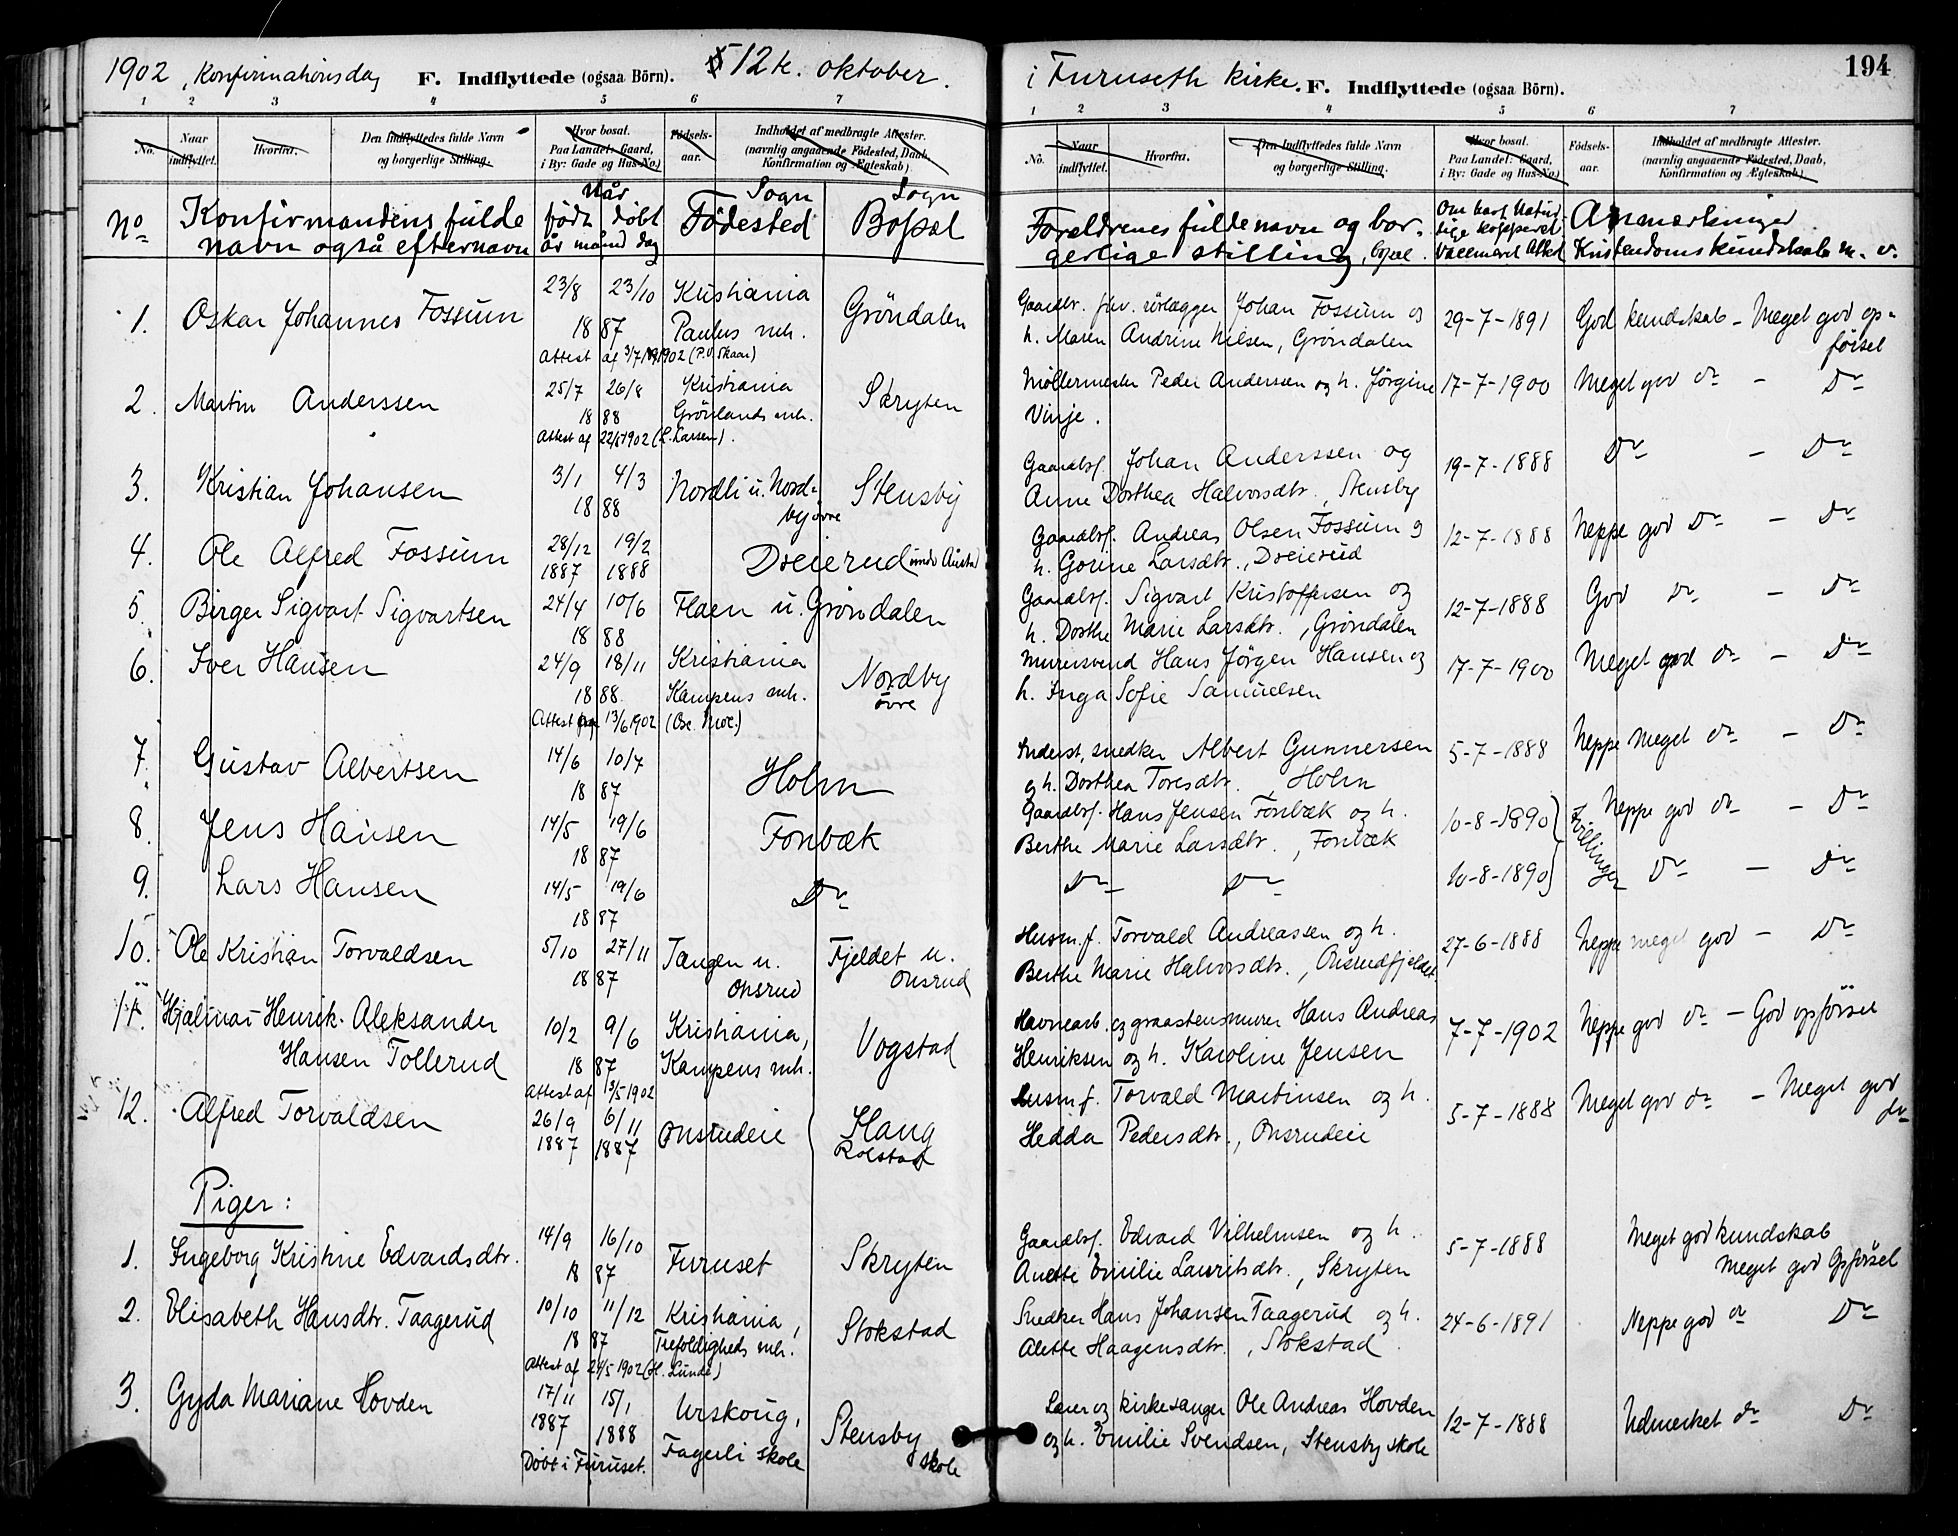 1902, Konfirmationsdag F. Indflyttede (ogsaa Börn). 12te. oktober.
1 2 3 4 5 6 7
No. Naar indflyttet. Hvorfra. Den Indflyttedes fulde Navn og borgerlige Stilling. Hvor bosat. Paa Landet: Gaard, i By: Gade og Hus-No.) Födsels-aar. Indholdet af medbragte Attester. (navnlig angaaende Födested, Daab, Konfirmation og Ægteskab)
No Konfirmandens fulde navn også efternavn Når født døbt år månd dag Sogn Födested Sogn Bopæl
1. Oskar Johannes Fossum 23/8 23/10 Kristiania Gröndalen
1887 Paulus mh.
Attest af 3/7 1902 (P.O. Skaar)
2. Martin Anderssen 25/7 26/8 Kristiania Skryten
1888 Grönlands mh.
Attest af 22/5 1902 (L. Larsen).
3. Kristian Johansen 3/1 4/3 Nordli u. Nord- Stensby
1888 by øvre
4. Ole Alfred Fossum 28/12 19/2 Dreierud under Austad
1887 1888
5. Birger Sigvart Sigvartsen 24/4 10/6 Flaen u. Gröndalen
1888
6. Iver Hansen 24/9 18/11 Kristiania Nordby
1888. Kampens mh. øvre
Attest 13/6 1902 (Ose. Moe.)
7. Gustav Albertsen 14/6 10/7 Holm
1887
8. Jens Hansen 14/5 19/6 Fonbæk
1887
9. Lars Hansen 14/5 19/6 Do
1887
10. Ole Kristian Torvaldsen 5/10 27/11 Tangen u. Fjeldet u.
1887 Onsrud Onsrud
11. Hjalmar Henrik Aleksander 10/2 9/6 Kristiania, Vogstad
Hansen Tollerud 1887 Kampens mh.
Attest af 3/5 1902
12. Alfred Torvaldsen 26/9 6/11 Onsrudeie Haug
1887 1887 Rolstad
Piger:
1. Ingeborg Kristine Edvardsdtr. 14/9 16/10 Furuset Skryten
1887
2. Elisabeth Hansdtr. Taagerud 10/10 11/12 Kristiania, Stokstad
1887 Trefoldigheds mh.
Attest af 24/5 1902 (H. Lunde)
3. Gyda Mariane Hovden 17/11 15/1 Urskoug, Stensby
1887 1888 Fagerli skole skole
Döbt i Furuset.
i Furuseth kirke. F. Indflyttede (ogsaa Börn). 194
1 2 3 4 5 6 7
No. Naar indflyttet. Hvorfra. Den Indflyttedes fulde Navn og borgerlige Stilling. Hvor bosat. Paa Landet: Gaard, i By: Gade og Hus-No.) Födsels-aar. Indholdet af medbragte Attester. (navnlig angaaende Födested, Daab, Konfirmation og Ægteskab)
Forældrenes fulde navn og bor- gerlige stilling, bopæl. Om havt Natur- lige kopper el. Vaccineret Attest Anmærkninger Kristendomskundskab m. v.
Gaardbr. fhv. rörlægger Johan Fossum og 29-7-1891 God kundskab - Meget god op-
h. Maren Andrine Nilsen, Gröndalen försel
Möllermester Peder Anderssen og h. Jörgine 17-7-1900 Meget god do - Do
Vinje.
Gaardbsf. Johan Anderssen og 19-7-1888 Do - Do
Anne Dorthea Halvorsdtr., Stensby
Gaardbsf. Andreas Olsen Fossum og 12-7-1888 Neppe god Do - Do
h. Gorine Larsdtr., Dreierud
Gaardbsf. Sigvart Kristoffersen og 12-7-1888 God Do - Do
h. Dorthe Marie Larsdtr., Gröndalen
Mursvend Hans Jörgen Hansen og 17-7-1900 Meget god do - Do
h. Inga Sofie Samuelsen
Inderst, snedker Albert Gunnersen 5-7-1888 Neppe meget do - Do
og h. Dorthea Toresdtr., Holm
Gaardbsf. Hans Jensen Fonbæk og h. 10-8-1890 Tvillinger Neppe god do - Do
Berthe Marie Larsdtr., Fonbæk
Do Do 10-8-1890 Do - Do
Husm.f. Torvald Andreassen og h. 27-6-1888 Neppe meget god - Do
Berthe Marie Halvorsdtr., Onsrudfjeldet
Havnearb. og graastensmurer Hans Andreas 7-7-1902 Neppe god do - God opförsel
Henriksen og h. Karoline Jensen
Husm.f. Torvald Martinsen og h. 5-7-1888 Meget god do - Meget god
Hedda Pedersdtr., Onsrudeie do
Gaardbsf. Edvard Vilhelmsen og h. 5-7-1888 Meget god kundskab
Anette Emilie Lauritsdtr., Skryten Meget god Opförsel
Snedker Hans Johansen Taagerud og h. 24-6-1891 Neppe god do Do
Alette Haagensdtr., Stokstad
Lærer og kirkesanger Ole Andreas Hovden 12-7-1888 Udmerket do Do
og h. Emilie Svendsen, Stensby skole